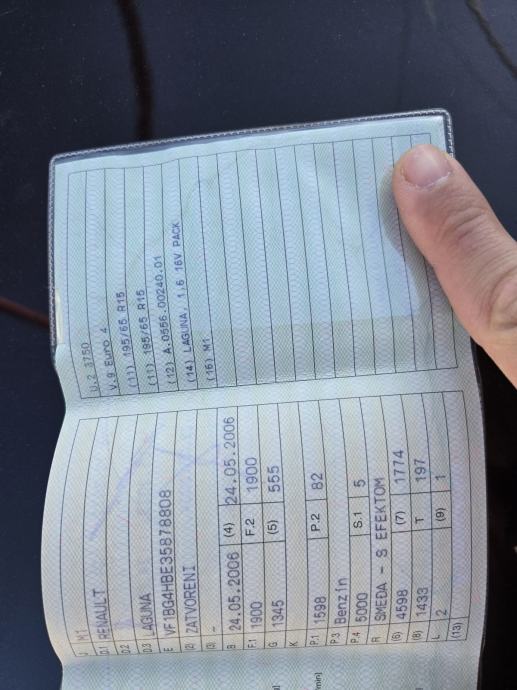 J M1
D.1 RENAULT
D.2
D.3 LAGUNA
E VF1BG4HBE35878808
(2) ZATVORENI
(3) -
B 24.05.2006 (4) 24.05.2006
F.1 1900 F.2 1900
G 1345 (5) 555
K
P.1 1598 P.2 82
P.3 Benzin
P.4 5000 S.1 5
R SMEĐA - S EFEKTOM
(6) 4598 (7) 1774
(8) 1433 T 197
L 2 (9) 1
(13)
U.2 3750
V.9 Euro 4
(11) 195/65 R15
(11) 195/65 R15
(12) A.0556.00240.01
(14) LAGUNA, 1.6 16V PACK
(16) M1